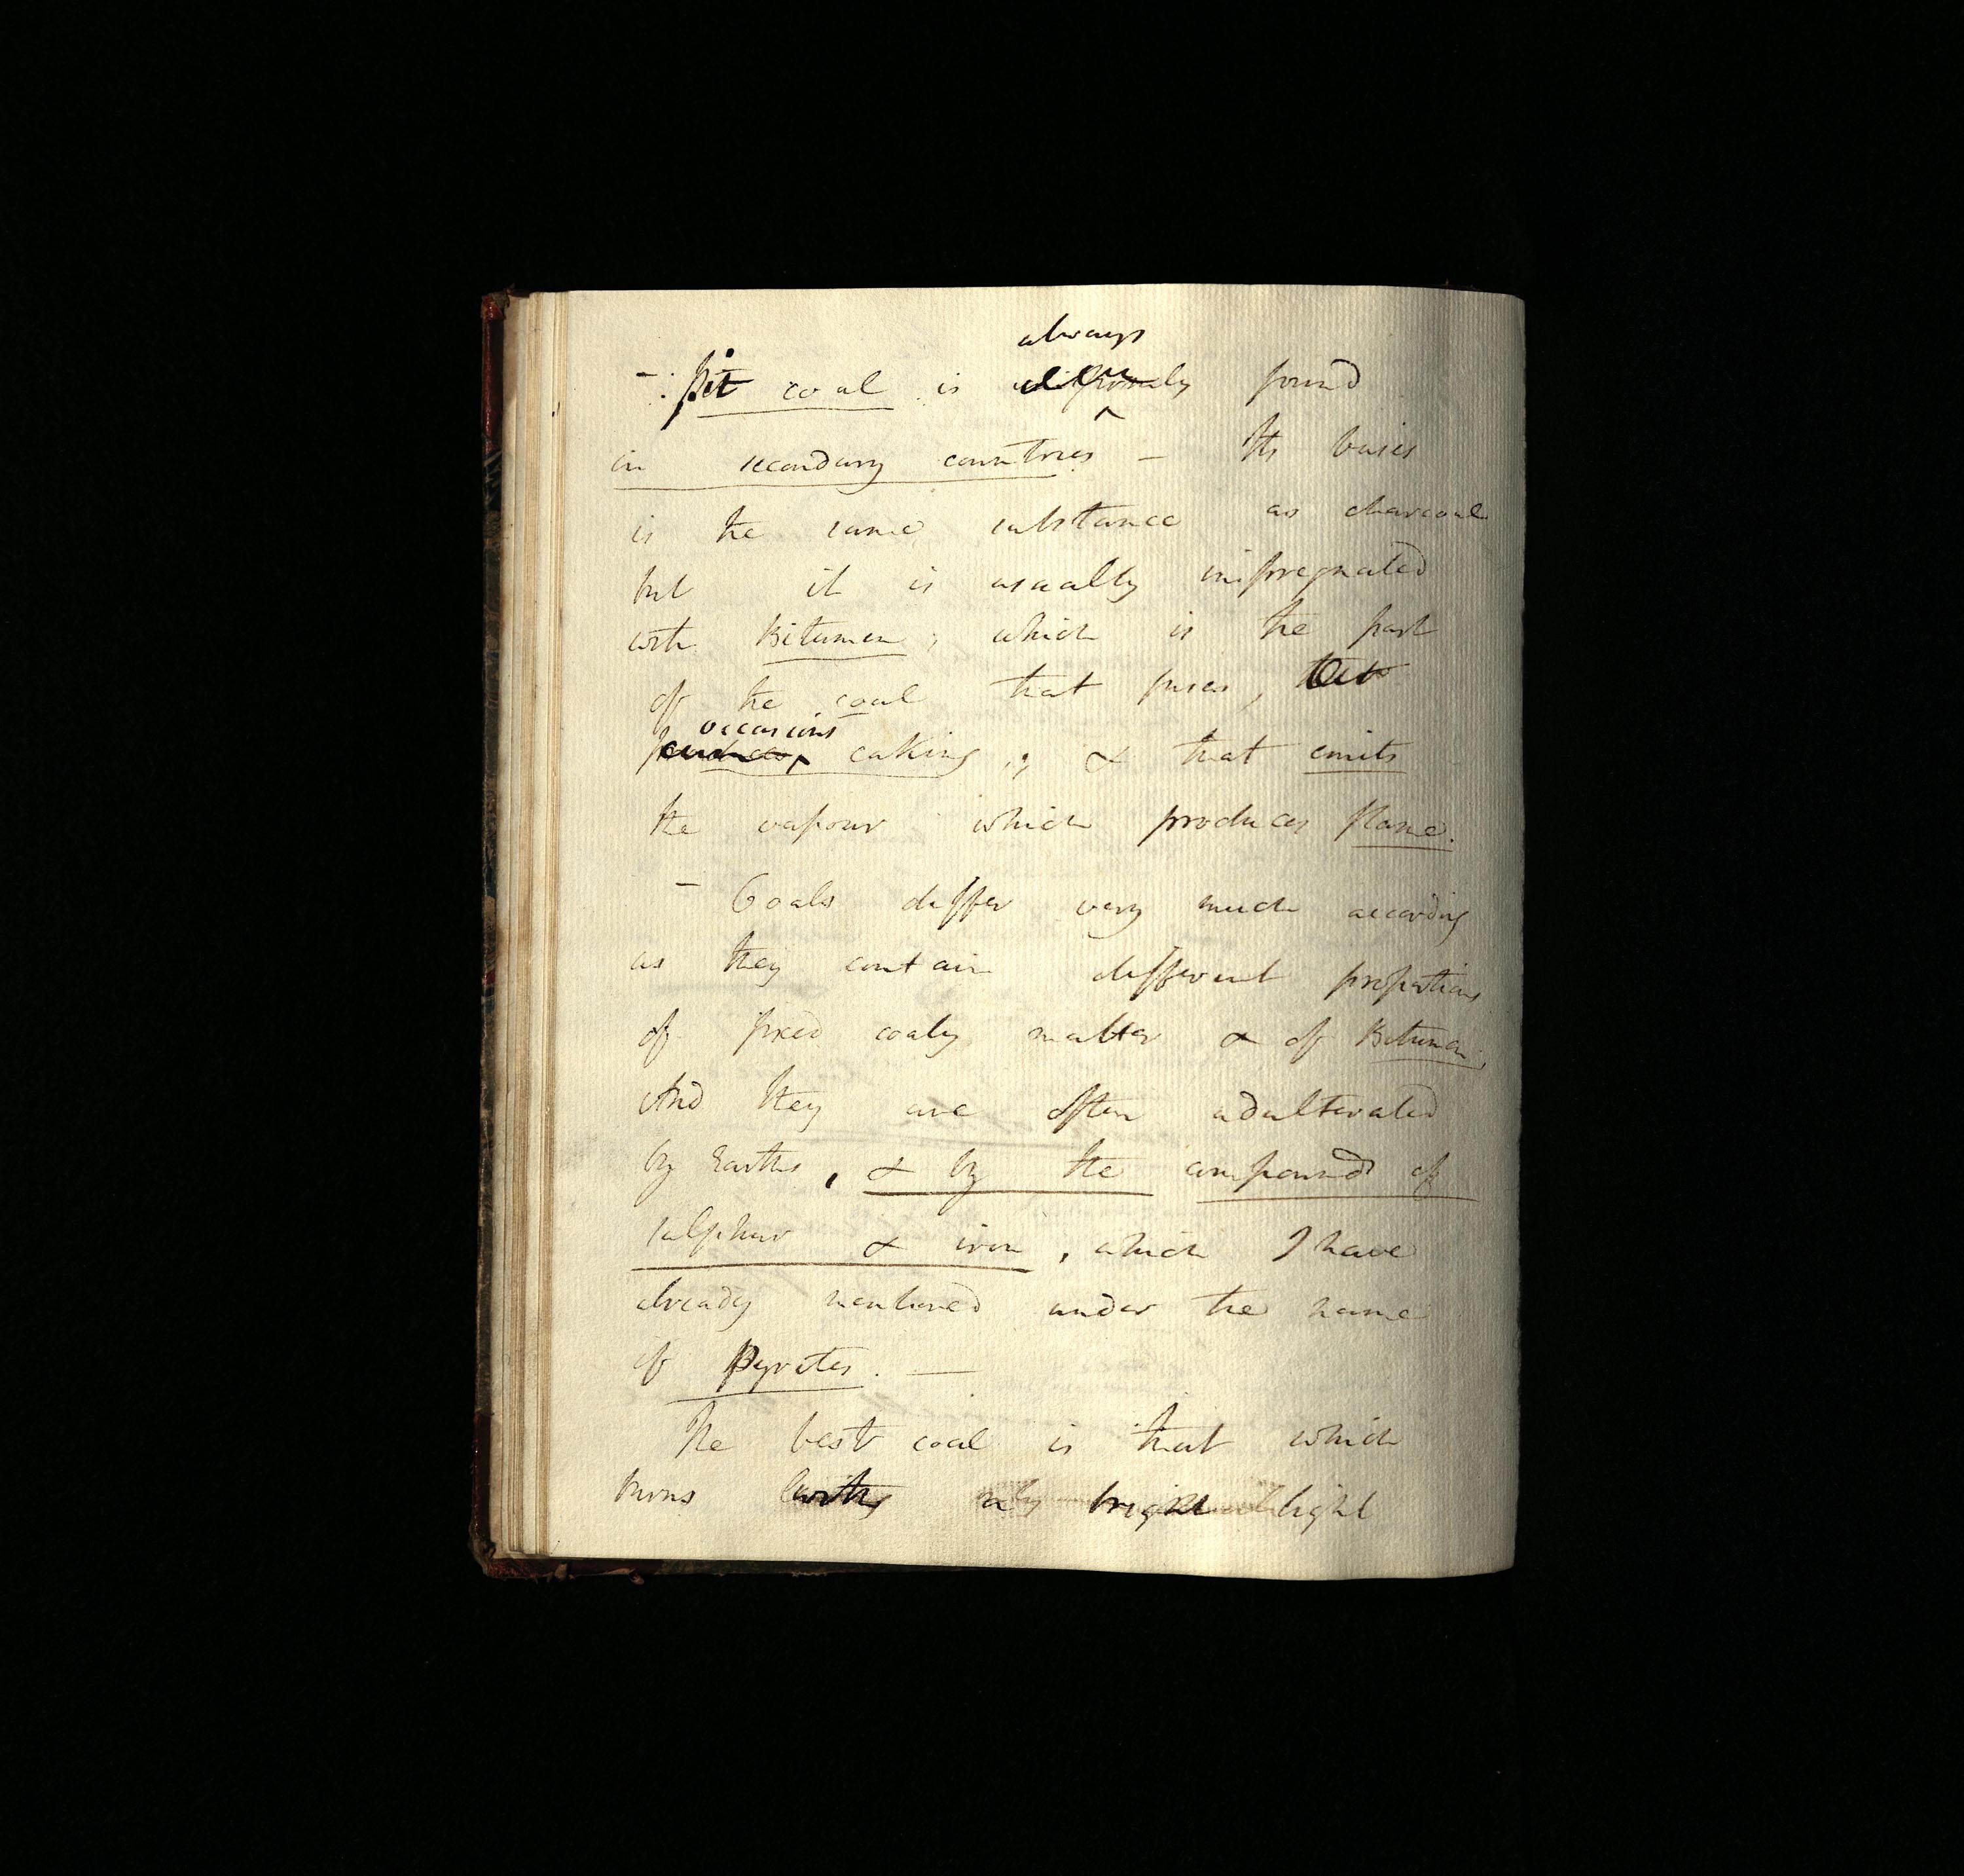 always
- Pit coal is uniformly found
in secondary countries - Its basis
is the same substance as charcoal
but it is usually impregnated
with Bitumen; which is the part
of the coal that fuses, that
occasions
caking; & that emits
the vapour which produces flame.
- Coals differ very much according
as they contain different proportions
of fixed coaly matter & of Bitumen;
And they are often adulterated
by Earths, & by the compound of
sulphur & iron, which I have
already mentioned under the name
of Pyrites. —
The best coal is that which
burns with bright light